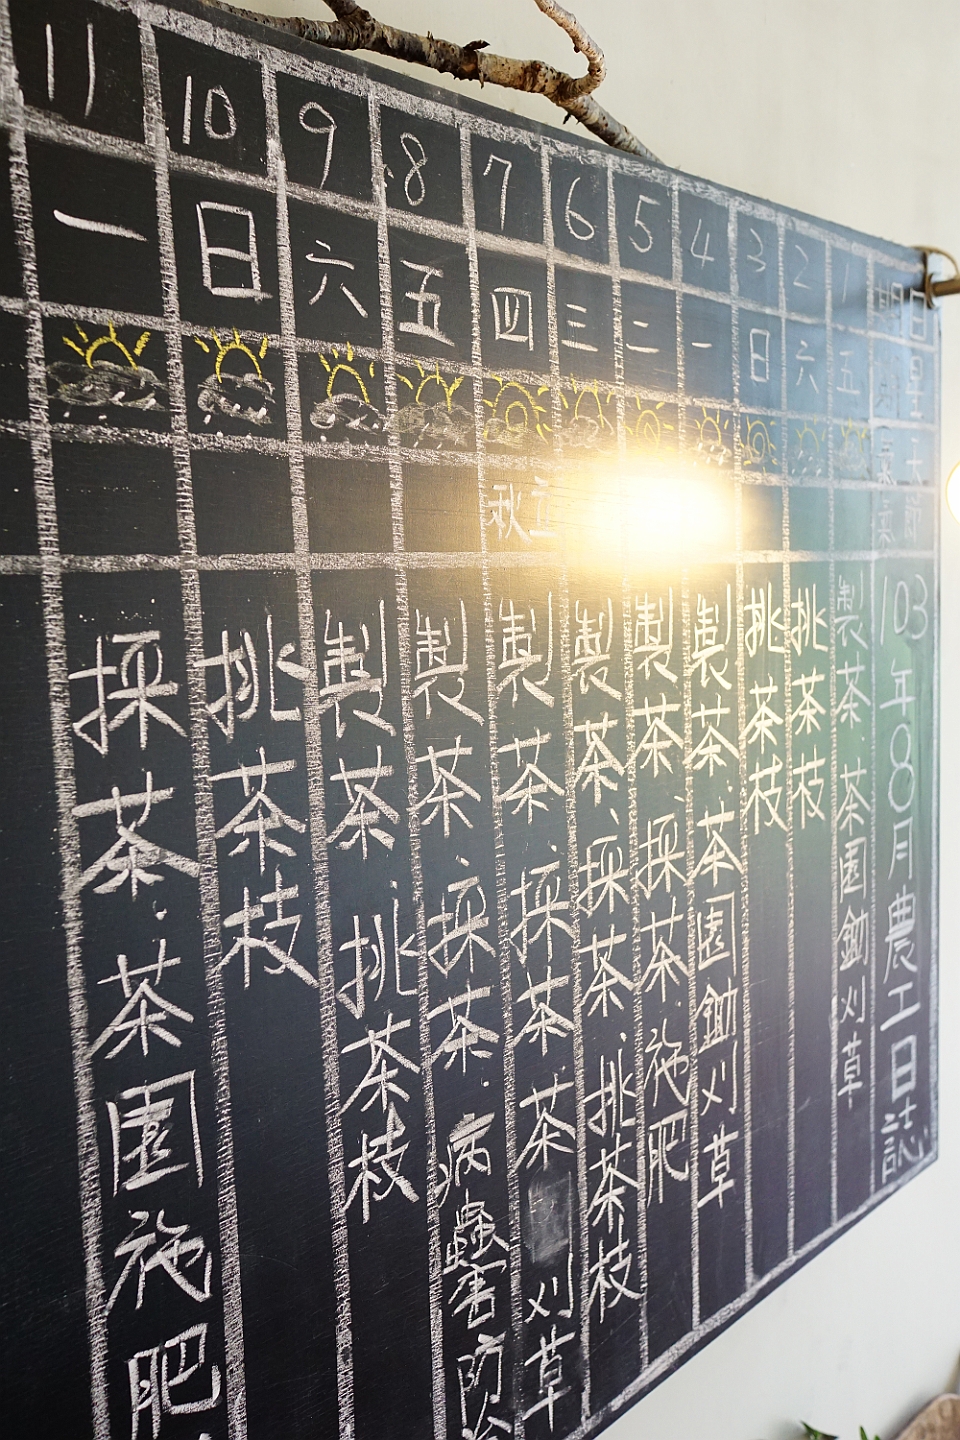 日期
星期
天氣
節氣
103年8月農工日誌
1
五
製茶.茶園鋤刈草
2
六
挑茶枝
3
日
挑茶枝
4
一
製茶.茶園鋤刈草
5
二
製茶.採茶.施肥
6
三
製茶.採茶.挑茶枝
7
四
立秋
製茶.採茶.茶刈草
8
五
製茶.採茶.病蟲害防
9
六
製茶.挑茶枝
10
日
挑茶枝
11
一
採茶.茶園施肥